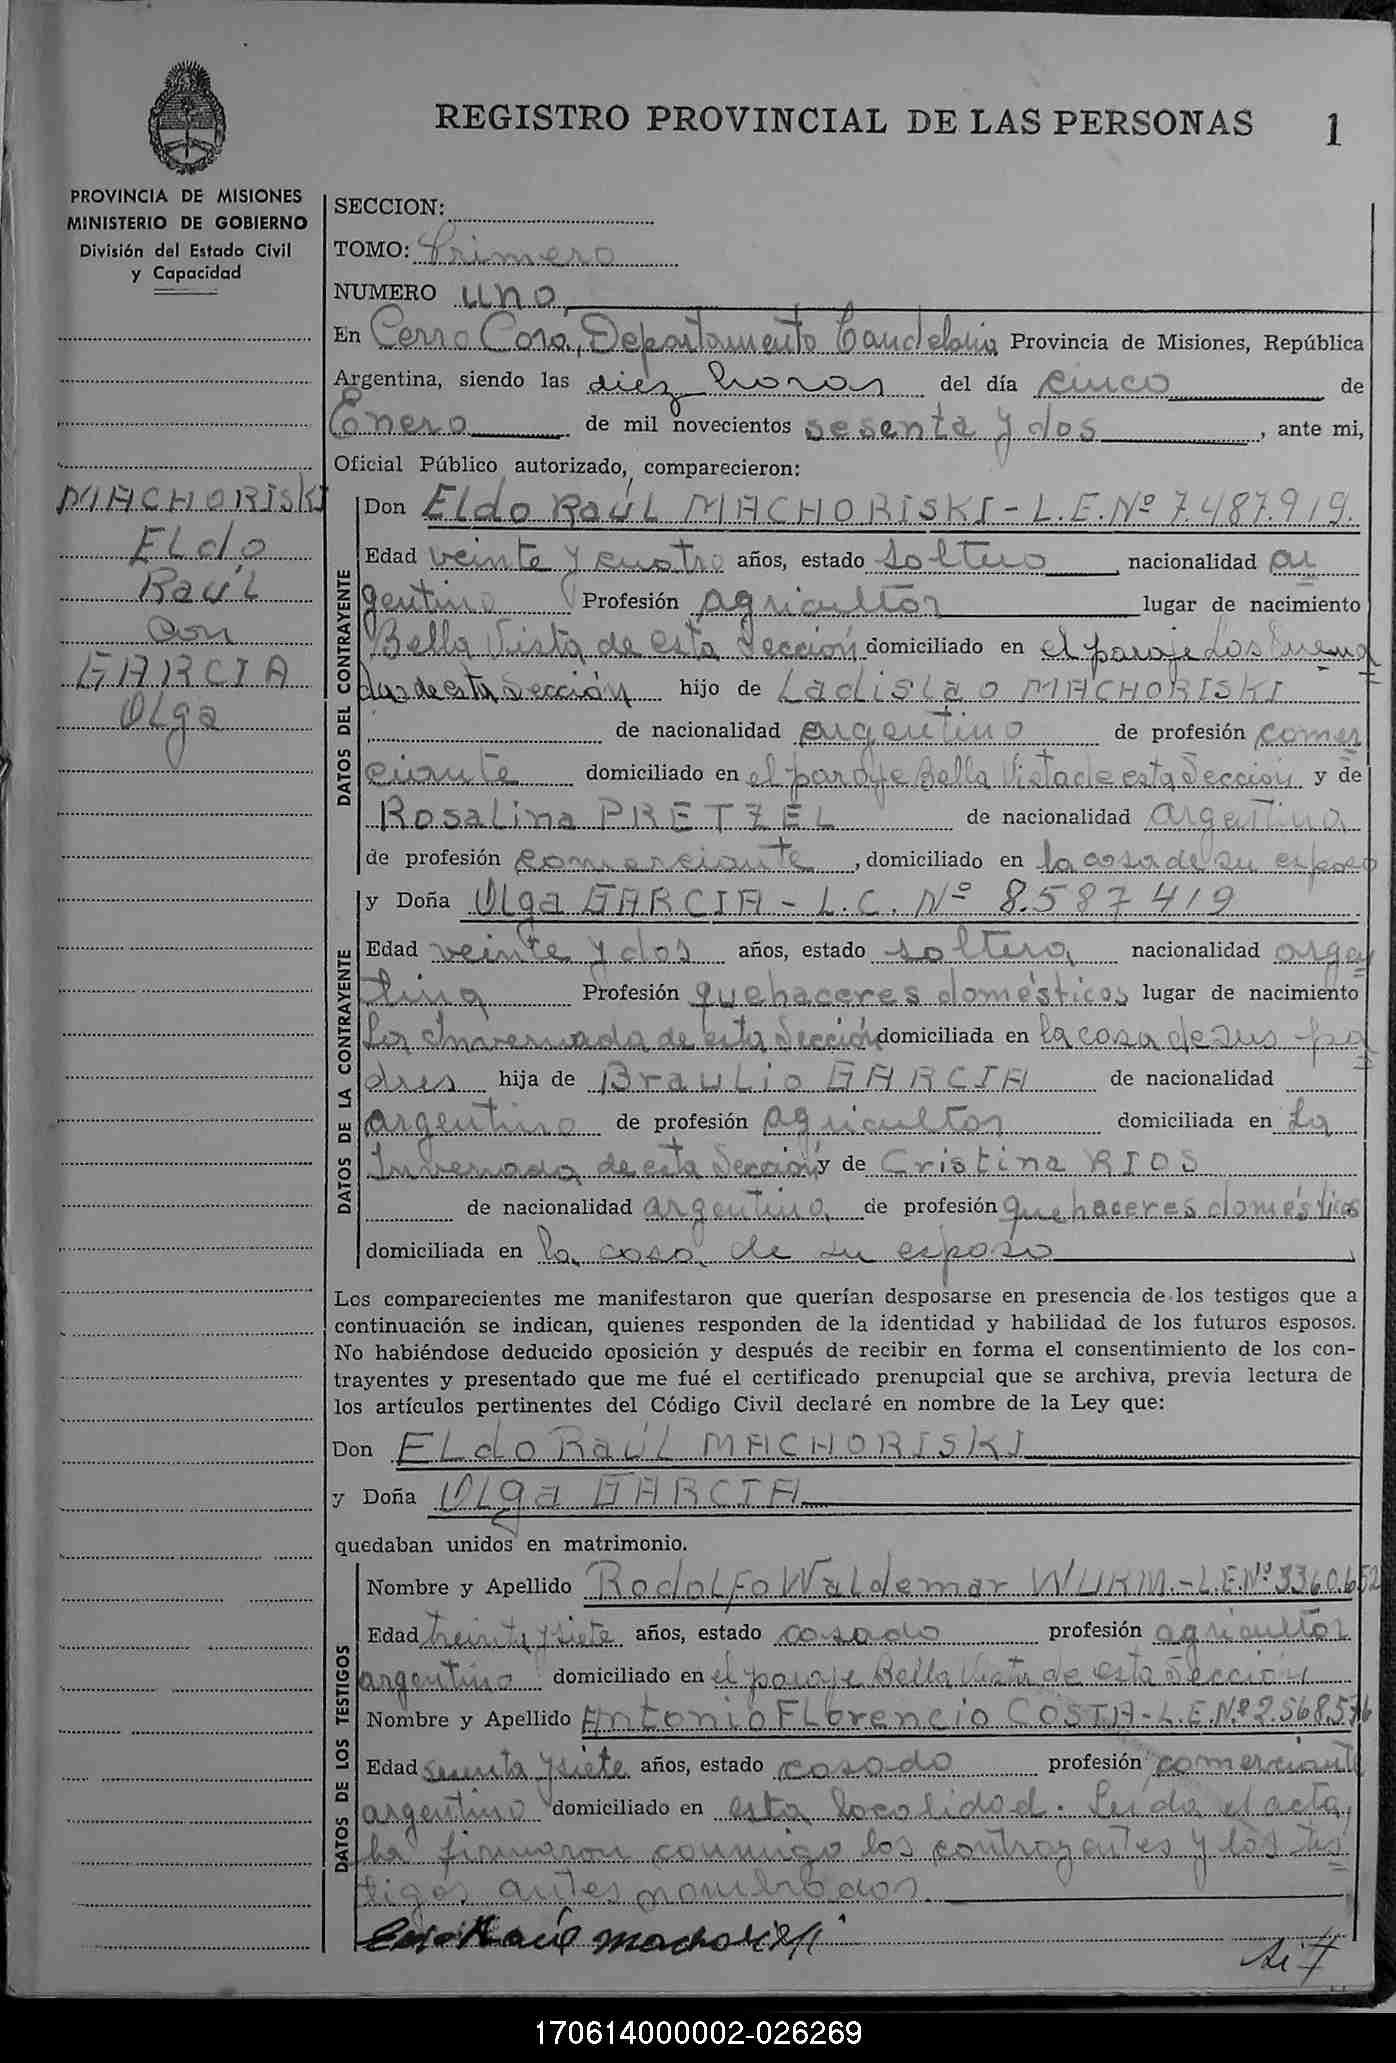 REGISTRO PROVINCIAL DE LAS PERSONAS 1
PROVINCIA DE MISIONES
MINISTERIO DE GOBIERNO
División del Estado Civil
y Capacidad
MACHORISKI
ELdo
Raúl
con
GARCIA
Olga
SECCION:
TOMO: Primero
NUMERO uno
En Cerro Corá, Departamento Candelaria Provincia de Misiones, República
Argentina, siendo las diez horas del día cinco de
Enero de mil novecientos sesenta y dos, ante mi,
Oficial Público autorizado, comparecieron:
DATOS DEL CONTRAYENTE
Don ELdo Raúl MACHORISKI - L.E. Nº 7.487.919.
Edad veinte y cuatro años, estado soltero, nacionalidad ar
gentino Profesión agricultor lugar de nacimiento
Bella Vista de esta Sección domiciliado en el paraje Los
de esta Sección hijo de Ladislao MACHORISKI
de nacionalidad argentino de profesión comer
ciante domiciliado en el paraje Bella Vista de esta Sección y de
Rosalina PRETZEL de nacionalidad argentina
de profesión comerciante, domiciliado en la casa de su esposo
DATOS DE LA CONTRAYENTE
y Doña Olga GARCIA - L.C. Nº 8.587419
Edad veinte y dos años, estado soltera, nacionalidad argen
tina Profesión quehaceres domésticos lugar de nacimiento
La Invernada de esta Sección domiciliada en la casa de sus pa
dres hija de Braulio GARCIA de nacionalidad
argentino de profesión agricultor domiciliada en La
Invernada de esta Sección y de Cristina RIOS
de nacionalidad argentina de profesión quehaceres domésticos
domiciliada en la casa de su esposo
Los comparecientes me manifestaron que querían desposarse en presencia de los testigos que a
continuación se indican, quienes responden de la identidad y habilidad de los futuros esposos.
No habiéndose deducido oposición y después de recibir en forma el consentimiento de los con-
trayentes y presentado que me fué el certificado prenupcial que se archiva, previa lectura de
los artículos pertinentes del Código Civil declaré en nombre de la Ley que:
Don ELdo Raúl MACHORISKI
y Doña Olga GARCIA
quedaban unidos en matrimonio.
DATOS DE LOS TESTIGOS
Nombre y Apellido Rodolfo Waldemar WURM.-L.E.Nº 3360.652
Edad treinta y siete años, estado casado profesión agricultor
argentino domiciliado en el paraje Bella Vista de esta Sección
Nombre y Apellido Antonio Florencio COSTA-L.E.Nº 2.568.576
Edad y siete años, estado casado profesión comerciante
argentino domiciliado en esta localidad. Leída el acta,
la firmaron conmigo los contrayentes y los tes
tigos antes nombrados.
Eldo Raúl Machoriski
170614000002-026269